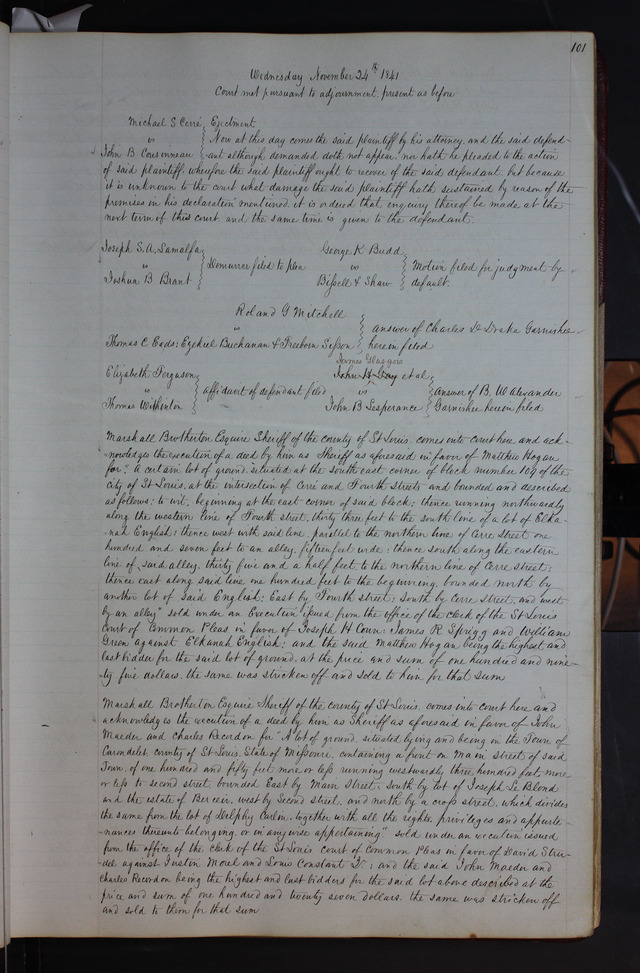 101
Wednesday November 24th 1841
Court met pursuant to adjournment, present as before
Michael S Cerré } Ejectment
vs } Now at this day comes the said plaintiff by his attorney, and the said defend-
John B ant although demanded doth not appear, nor hath he pleaded to the action
of said plaintiff, wherefore the said plaintiff ought to recover of the said defendant, but because
it is unknown to the court what damage the said plaintiff hath sustained by reason of the
premises in his declaration mentioned, it is ordered that enquiry thereof be made at the
next term of this court, and the same time is given to the defendant.
Joseph S. A. George K Budd
vs } Demurrer filed to plea vs } Motion filed for judgment by
Joshua B Brant Bissell & Shaw default.
Roland G Mitchell
vs } answer of Charles D Drake Garnishee
Thomas C Eads; Ezekiel Buchanan & Freeborn Sisson herein filed
James
Elizabeth Ferguson John H Gay et al
vs } affidavit of defendant filed vs } Answer of B. W Alexander
Thomas John B Lesperance Garnishee herein filed
Marshall Brotherton Esquire Sheriff of the county of St Louis, comes into court here and ack-
nowledges the execution of a deed by him as Sheriff as aforesaid in favor of Matthew Hogan
for "A certain lot of ground situated at the south east corner of block number 109 of the
city of St Louis, at the intersection of Cerré and Fourth Streets and bounded and described
as follows; to wit, beginning at the east corner of said block; thence running northwardly
along the western line of Fourth street, thirty three feet to the south line of a lot of Elka-
nah English; thence west with said line, parallel to the northern line of Cerre street one
hundred and seven feet to an alley, fifteen feet wide; thence south along the eastern
line of said alley, thirty five and a half feet to the northern line of Cerre street;
thence east along said line one hundred feet to the beginning, bounded north by
another lot of said English; East by Fourth street; South by Cerre street, and west
by an alley" sold under an Execution issued from the office of the clerk of the St Louis
Court of Common Pleas in favor of Joseph H James R Sprigg and William
Green against Elkanah English; and the said Matthew Hogan being the highest and
last bidder for the said lot of ground, at the price and sum of one hundred and nine-
ty five dollars, the same was stricken off and sold to him for that sum
Marshall Brotherton Esquire Sheriff of the county of St Louis, comes into court here and
acknowledges the execution of a deed by him as Sheriff as aforesaid in favor of John
Maeder and Charles Recordon for "A lot of ground, situated lying and being in the Town of
Carondelet, county of St Louis, State of Missouri, containing a front on Main Street, of said
Town, of one hundred and fifty feet more or less running westwardly three hundred feet, more
or less to second street, bounded East by Main Street, South by lot of Joseph Le Blond
and the estate of west by Second street, and north by a cross street, which divides
the same from the lot of Delphy Carlin, together with all the rights, privileges and appurte-
nances thereunto belonging, or in any wise appertaining" sold under an execution issued
from the office of the clerk of the St Louis court of Common Pleas in favor of David Stru-
del against and Louis Constant and the said John Maeder and
Charles Recordon being the highest and last bidders for the said lot above described at the
price and sum of one hundred and twenty seven dollars, the same was stricken off
and sold to them for that sum